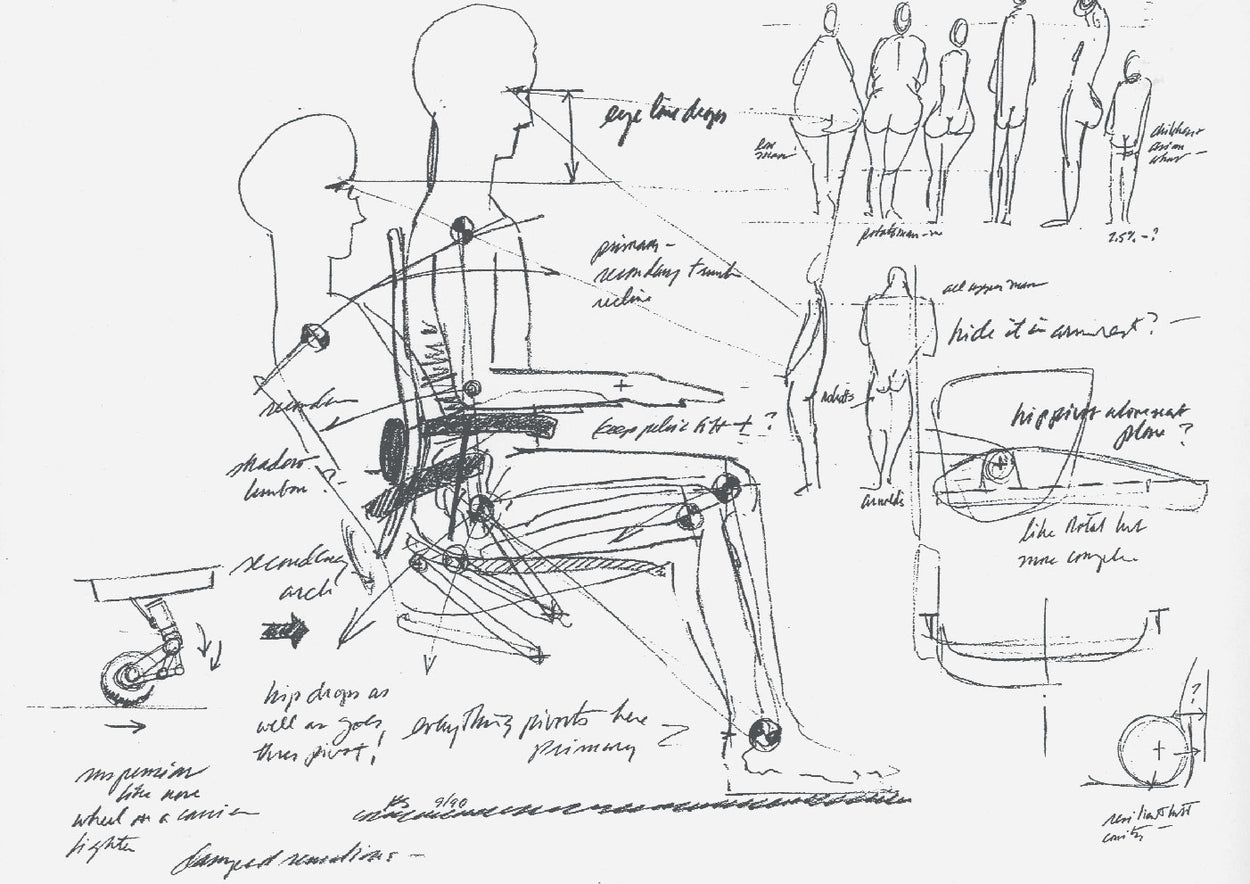 eye line drops
primary -
secondary trunk
recline
keep pelvic tilt + ?
shadow
lumbar ?
secondary
arch
hip drops as
well as goes
thru pivot!
everything pivots here
primary
suspension
like nose
wheel on a carrier
fighter
damped sensations -
9/90
2.5% - ?
all upper man
hide it in armrest? -
robots
Arnolds
hip pivot above seat
plane ?
like Rotal but
more complex
?
resilient butt
cavity -